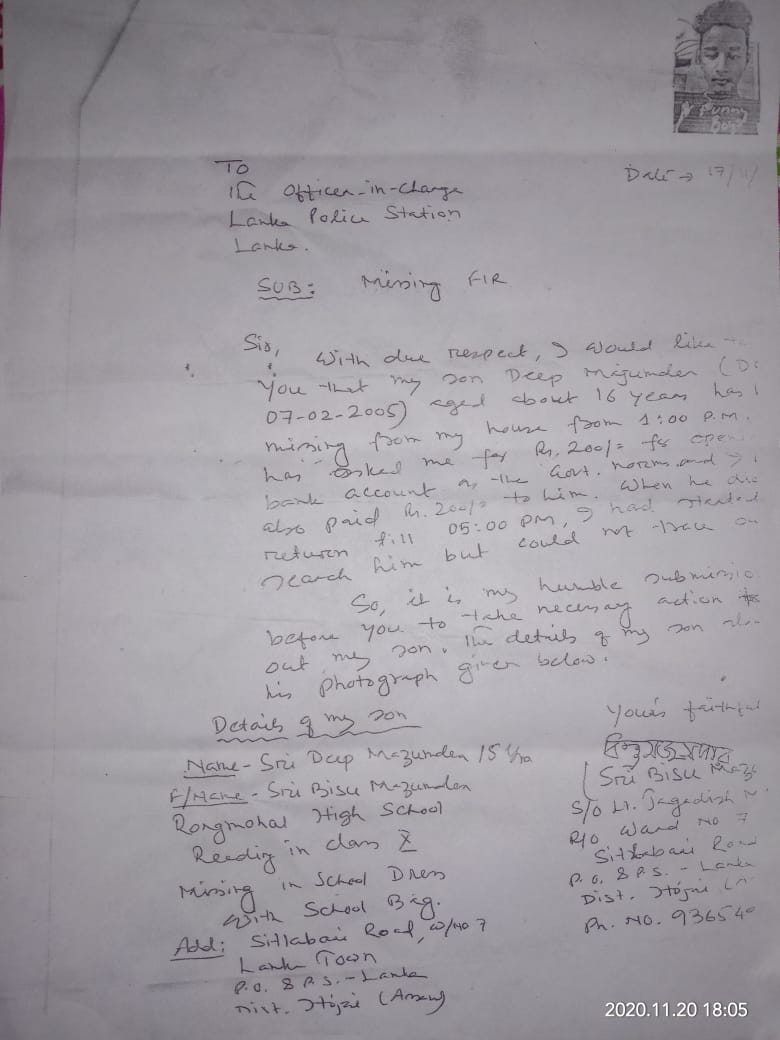 To
The Officer-in-charge
Lanka Police Station
Lanka.
Date → 17/11/
SUB: Missing FIR
Sir,
With due respect, I would like
you that my son Deep Majumder (D
07-02-2005) aged about 16 years has
missing from my house from 1:00 P.M.
has asked me for Rs. 200/= for open
bank account as the Govt. norms and I
also paid Rs. 200/= to him. When he di
return till 05:00 PM, I had started
search him but could not trace
So, it is my humble submissio
before you to take necessay action
out my son. The details of my son
his photograph given below.
Details of my son
Name - Sri Deep Mazumder 15 Yrs
F/Name - Sri Bisu Mazumder
Rongmohal High School
Reading in class X
Missing in School Dress
with School Bag.
Add: Sitlabari Road, W/No 7
Lanka Town
P.O. & P.S. - Lanka
Dist. Hojai (Assam)
Yours faithful
Sri Bisu Maz
S/O Lt. Jagadish M
R/O Ward No 7
Sitlabari Road
P.O. & P.S. - Lanka
Dist. Hojai
Ph. No. 93654
2020.11.20 18:05